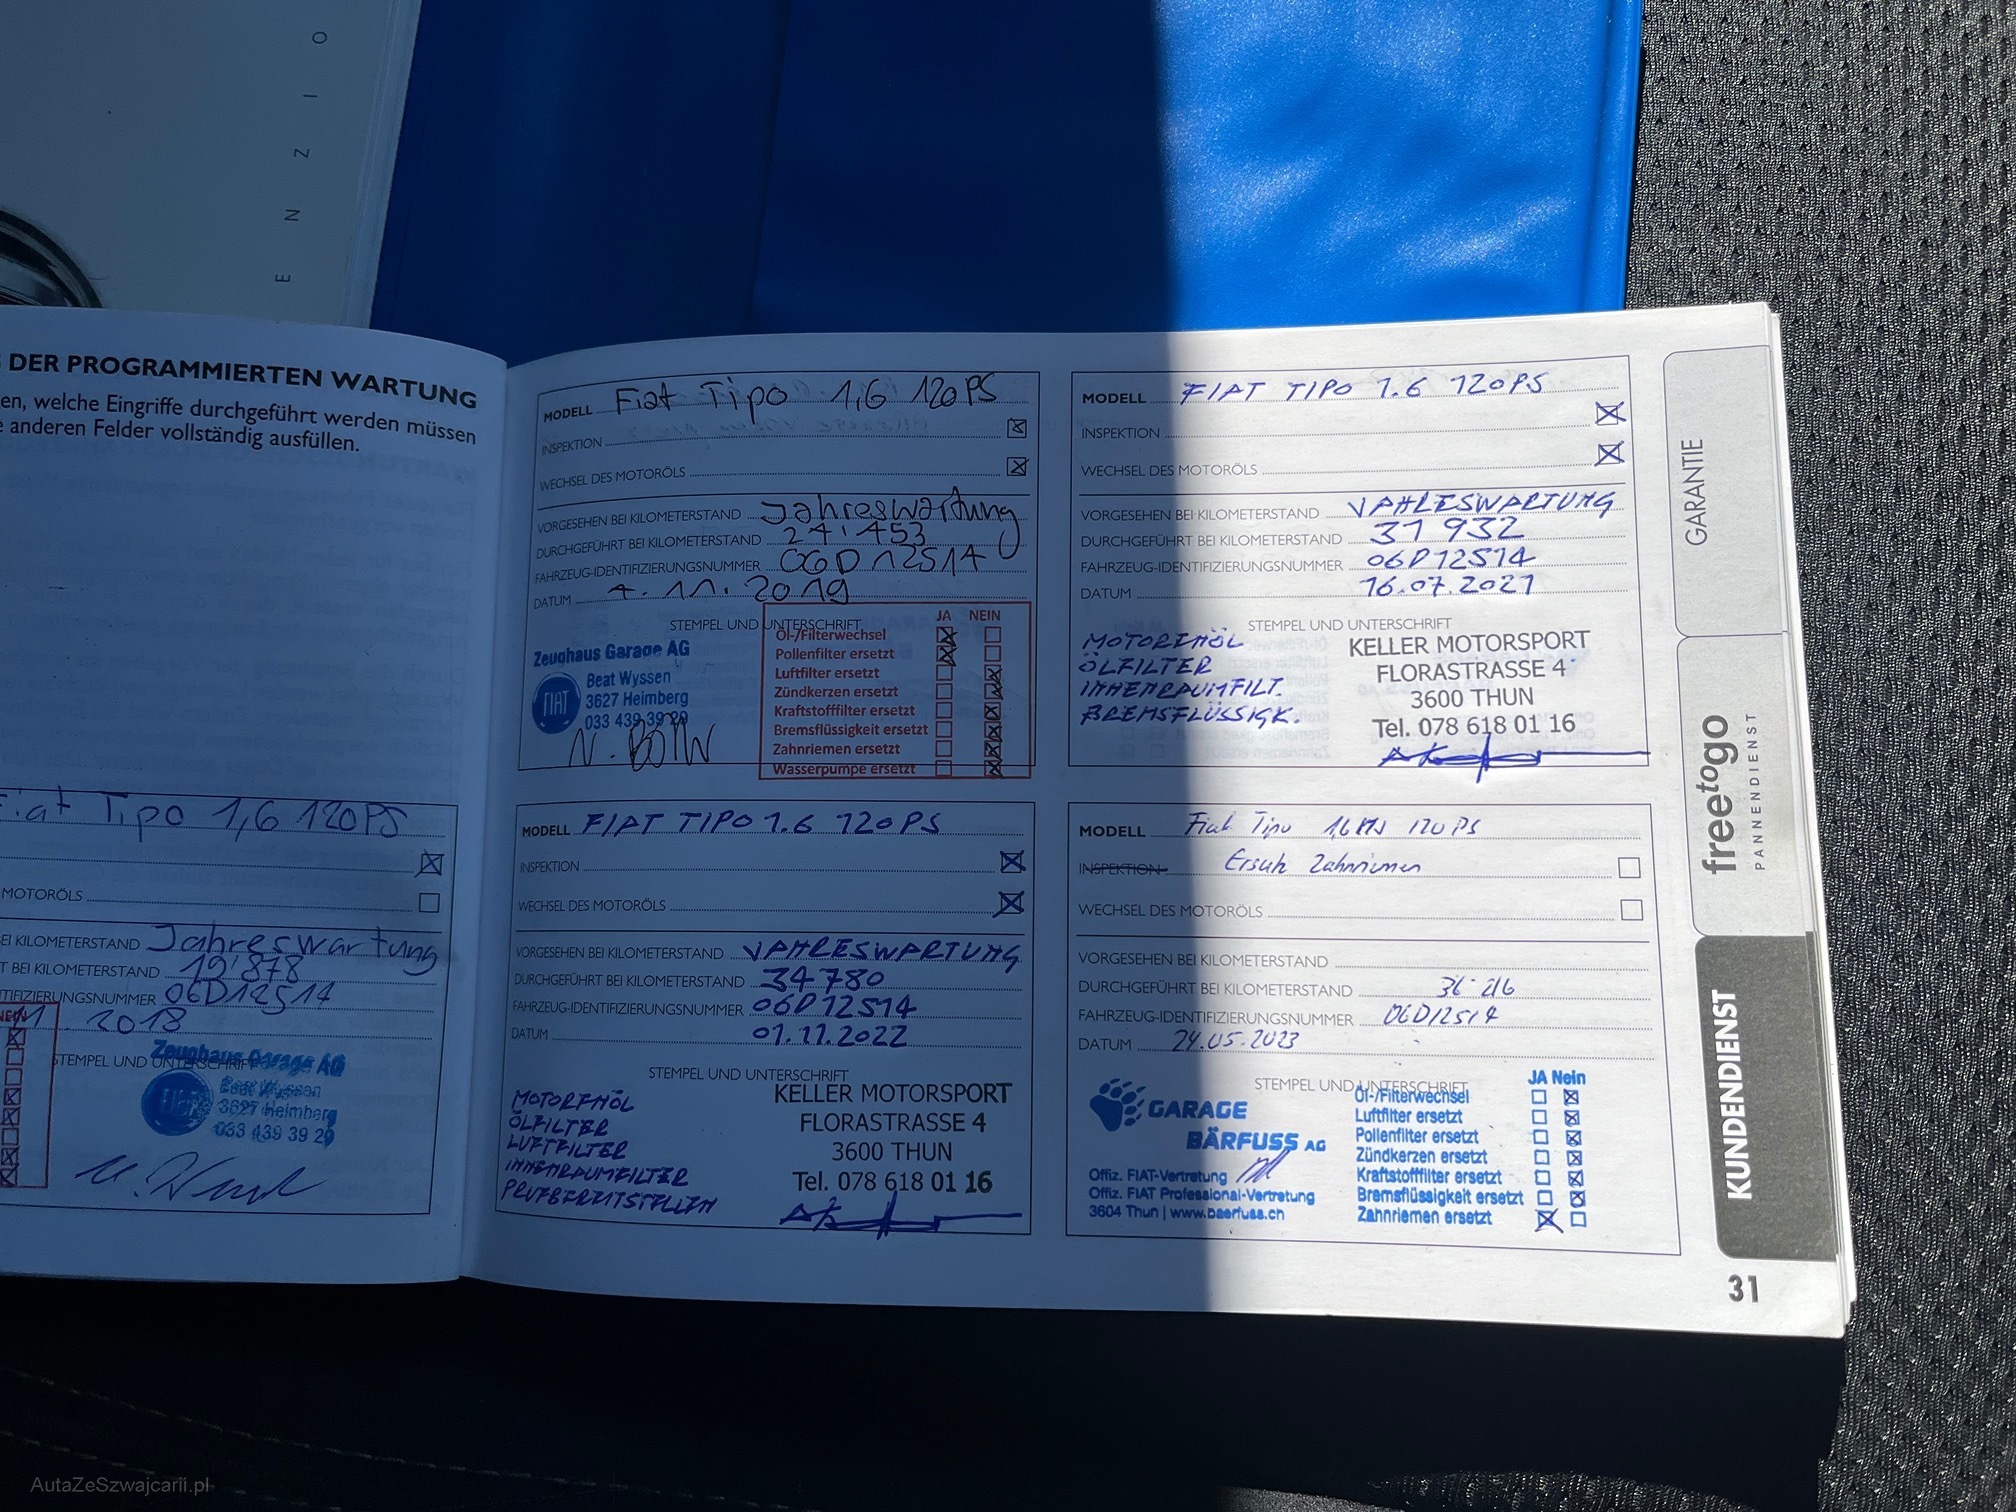 O
I
Z
N
E
DER PROGRAMMIERTEN WARTUNG
en, welche Eingriffe durchgeführt werden müssen
anderen Felder vollständig ausfüllen.
Fiat Tipo 1,6 120PS
MOTORÖLS
EI KILOMETERSTAND Jahreswartung
T BEI KILOMETERSTAND 19'878
NTIFIZIERUNGSNUMMER 06D12514
2018
NEIN
STEMPEL UND UNTERSCHRIFT
Zeughaus Garage AG
FIAT
Beat Wyssen
3627 Heimberg
033 439 39 29
MODELL Fiat Tipo 1,6 120PS
INSPEKTION
WECHSEL DES MOTORÖLS
VORGESEHEN BEI KILOMETERSTAND Jahreswartung
DURCHGEFÜHRT BEI KILOMETERSTAND 27'453
FAHRZEUG-IDENTIFIZIERUNGSNUMMER 06D12514
DATUM 4.11.2019
STEMPEL UND UNTERSCHRIFT
Zeughaus Garage AG
FIAT
Beat Wyssen
3627 Heimberg
033 439 39 29
JA NEIN
Öl-/Filterwechsel
Pollenfilter ersetzt
Luftfilter ersetzt
Zündkerzen ersetzt
Kraftstofffilter ersetzt
Bremsflüssigkeit ersetzt
Zahnriemen ersetzt
Wasserpumpe ersetzt
MODELL FIAT TIPO 1.6 120PS
INSPEKTION
WECHSEL DES MOTORÖLS
VORGESEHEN BEI KILOMETERSTAND JAHRESWARTUNG
DURCHGEFÜHRT BEI KILOMETERSTAND 31 932
FAHRZEUG-IDENTIFIZIERUNGSNUMMER 06D12514
DATUM 16.07.2021
STEMPEL UND UNTERSCHRIFT
MOTORENÖL
ÖLFILTER
INNENRAUMFILT.
BREMSFLÜSSIGK.
KELLER MOTORSPORT
FLORASTRASSE 4
3600 THUN
Tel. 078 618 01 16
MODELL FIAT TIPO 1.6 120PS
INSPEKTION
WECHSEL DES MOTORÖLS
VORGESEHEN BEI KILOMETERSTAND JAHRESWARTUNG
DURCHGEFÜHRT BEI KILOMETERSTAND 34780
FAHRZEUG-IDENTIFIZIERUNGSNUMMER 06D12514
DATUM 01.11.2022
STEMPEL UND UNTERSCHRIFT
MOTORENÖL
ÖLFILTER
LUFTFILTER
INNENRAUMFILTER
KELLER MOTORSPORT
FLORASTRASSE 4
3600 THUN
Tel. 078 618 01 16
MODELL Fiat Tipo 120 PS
INSPEKTION Ersatz Zahnriemen
WECHSEL DES MOTORÖLS
VORGESEHEN BEI KILOMETERSTAND
DURCHGEFÜHRT BEI KILOMETERSTAND 36'216
FAHRZEUG-IDENTIFIZIERUNGSNUMMER 06D12514
DATUM 24.05.2023
STEMPEL UND UNTERSCHRIFT
GARAGE
BÄRFUSS AG
Offiz. FIAT-Vertretung
Offiz. FIAT Professional-Vertretung
3604 Thun | www.baerfuss.ch
JA Nein
Öl-/Filterwechsel
Luftfilter ersetzt
Pollenfilter ersetzt
Zündkerzen ersetzt
Kraftstofffilter ersetzt
Bremsflüssigkeit ersetzt
Zahnriemen ersetzt
GARANTIE
freetogo
PANNENDIENST
KUNDENDIENST
31
AutaZeSzwajcarii.pl